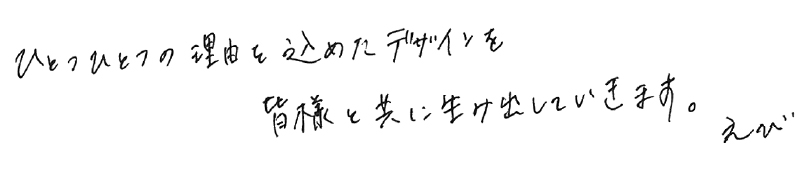 ひとつひとつの理由を込めたデザインを
皆様と共に生み出していきます。
えび